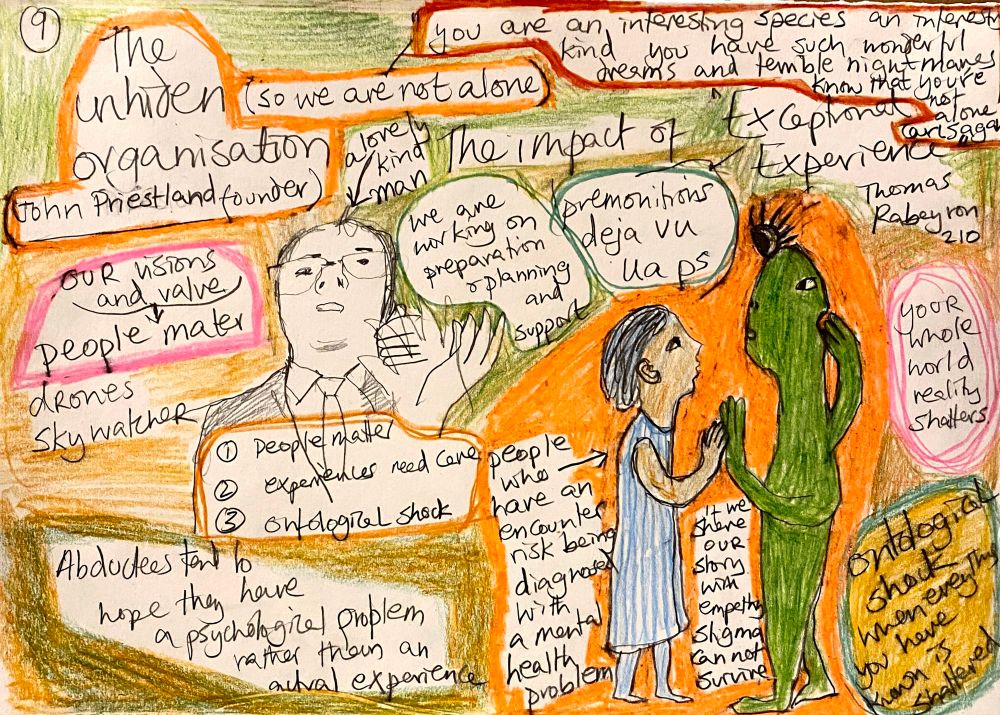 9
The
unhiden
organisation
(John Priestland founder)
(so we are not alone)
you are an interesting species an interesti
kind you have such wonderful
dreams and terrible nightmares
know that you're
not
alone
Carl Saga
a lovely
kind
man
The impact of
Exceptional
Experience
Thomas
Rabeyron
210
we are
working on
preparation
& planning
and
support
premonitions
deja vu
uaps
our visions
and valve
people mater
drones
skywatcher
① People matter
② experiences need care
③ ontological shock
Abductees tend to
hope they have
a psychological problem
rather than an
actual experience
people
who
have an
encounter
risk being
diagnosed
with
a mental
health
problem
if we
share
our
story
with
empathy
stigma
can not
survive
your
whole
world
reality
shatters
ontological
shock
when everything
you have
known is
shattered